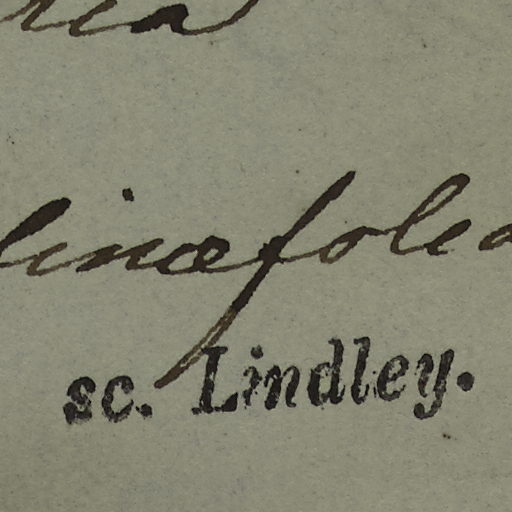 ria
linæfolia
sc. Lindley.